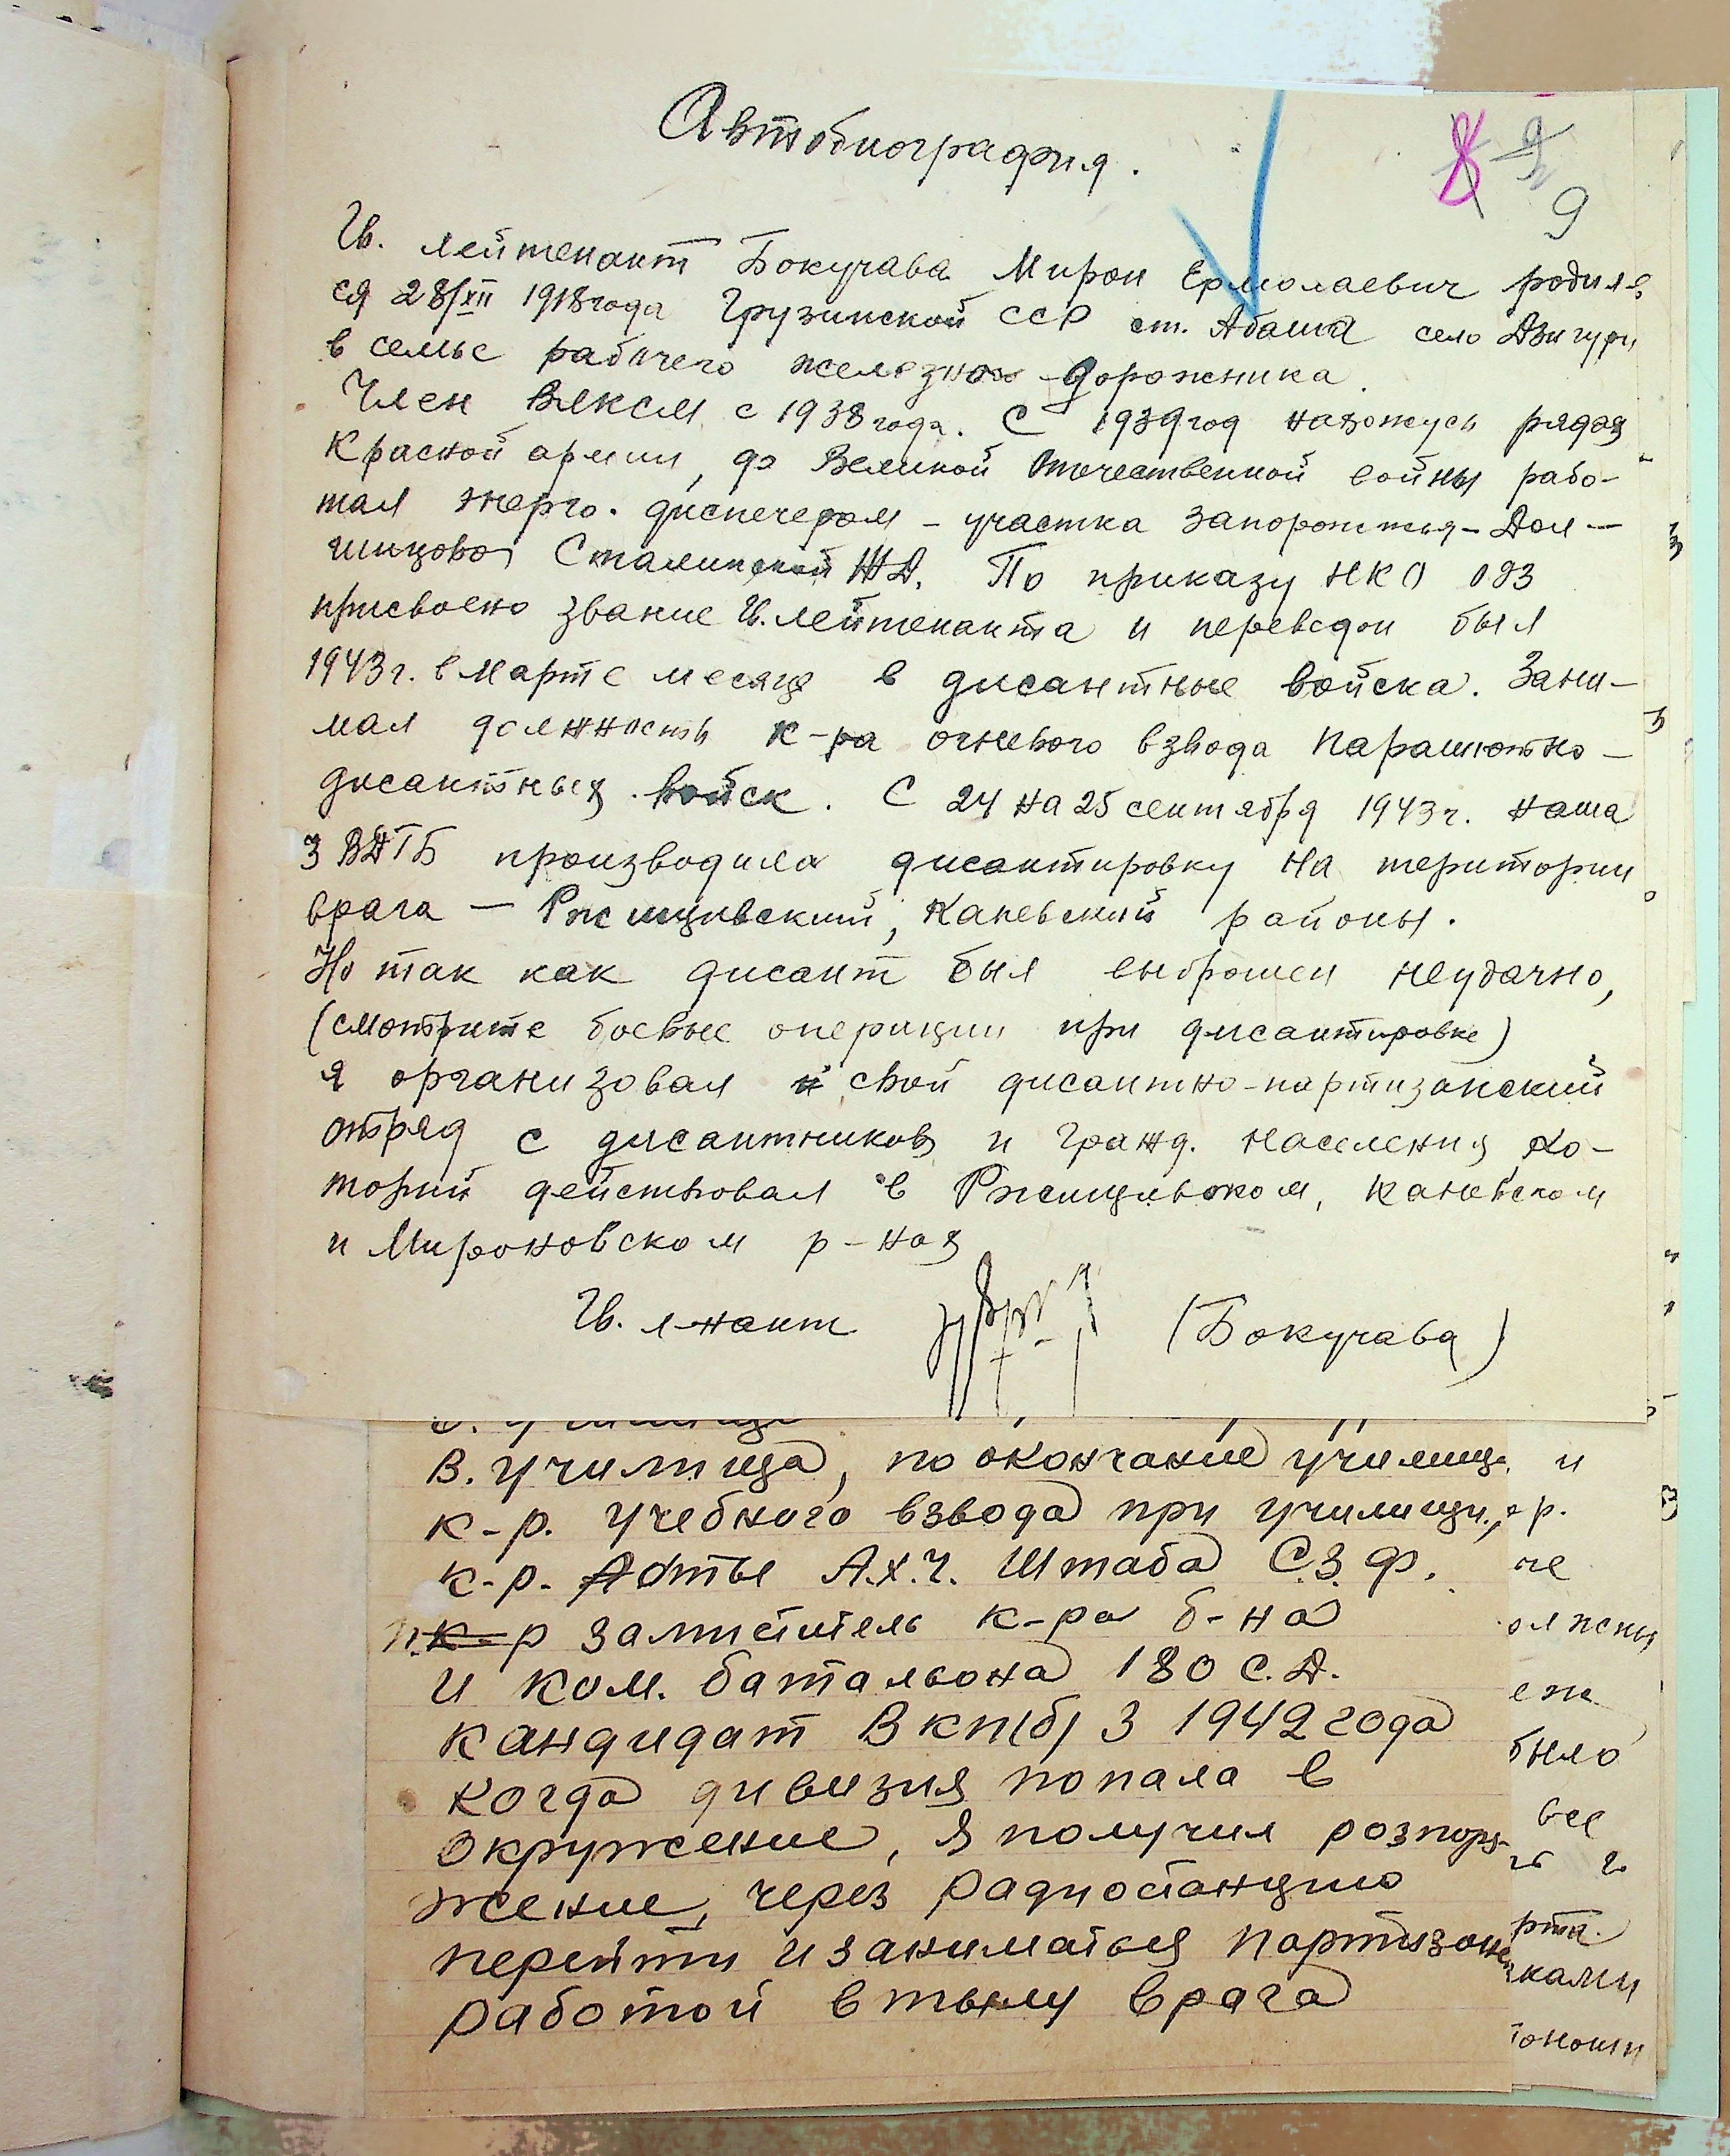 Автобиография.
9
Гв. лейтенант Бокучава Мирон Ермолаевич родил
ся 28/XII 1918 года Грузинской ССР ст. Абаша село Дзигури
в семье рабочего железно дорожника.
Член ВЛКСМ с 1938 года. С 1939 год нахожусь рядах
Красной армии, до Великой Отечественной войны рабо-
тал энерго. диспечером - участка Запорожья - Дол-
гинцово Сталинской ЖД. По приказу НКО 093
присвоено звание Гв. лейтенанта и переведен был
1943 г. в марте месяце в дисантные войска. Зани-
мал должность к-ра огневого взвода парашютно-
дисантных войск. С 24 на 25 сентября 1943 г. наша
3 ВДГБ производила дисантировку на територии
врага — Ржищивский, Каневский районы.
Но так как дисант был выброшен неудачно,
(смотрите боевые операции при дисантировке)
я организовал свой дисантно-партизанский
отряд с дисантников и гражд. населения, ко-
торый действовал в Ржищивском, Каневском
и Мироновском р-нах
Гв. л-нант (Бокучава)
В. училища, по окончание училищ. и
к-р. учебного взвода при училищи, ор.
к-р. А.Х.Ч. Штаба С.З.Ф.
р заміститель к-ра б-на
и ком. батальона 180 С.Д.
кандидат ВКП(б) З 1942 года
когда дивизия попала в
окружение, я получил розпоря-
жение, через радиостанцию
перейти и заниматься партизан
работой в тылу врага
было
все
ками